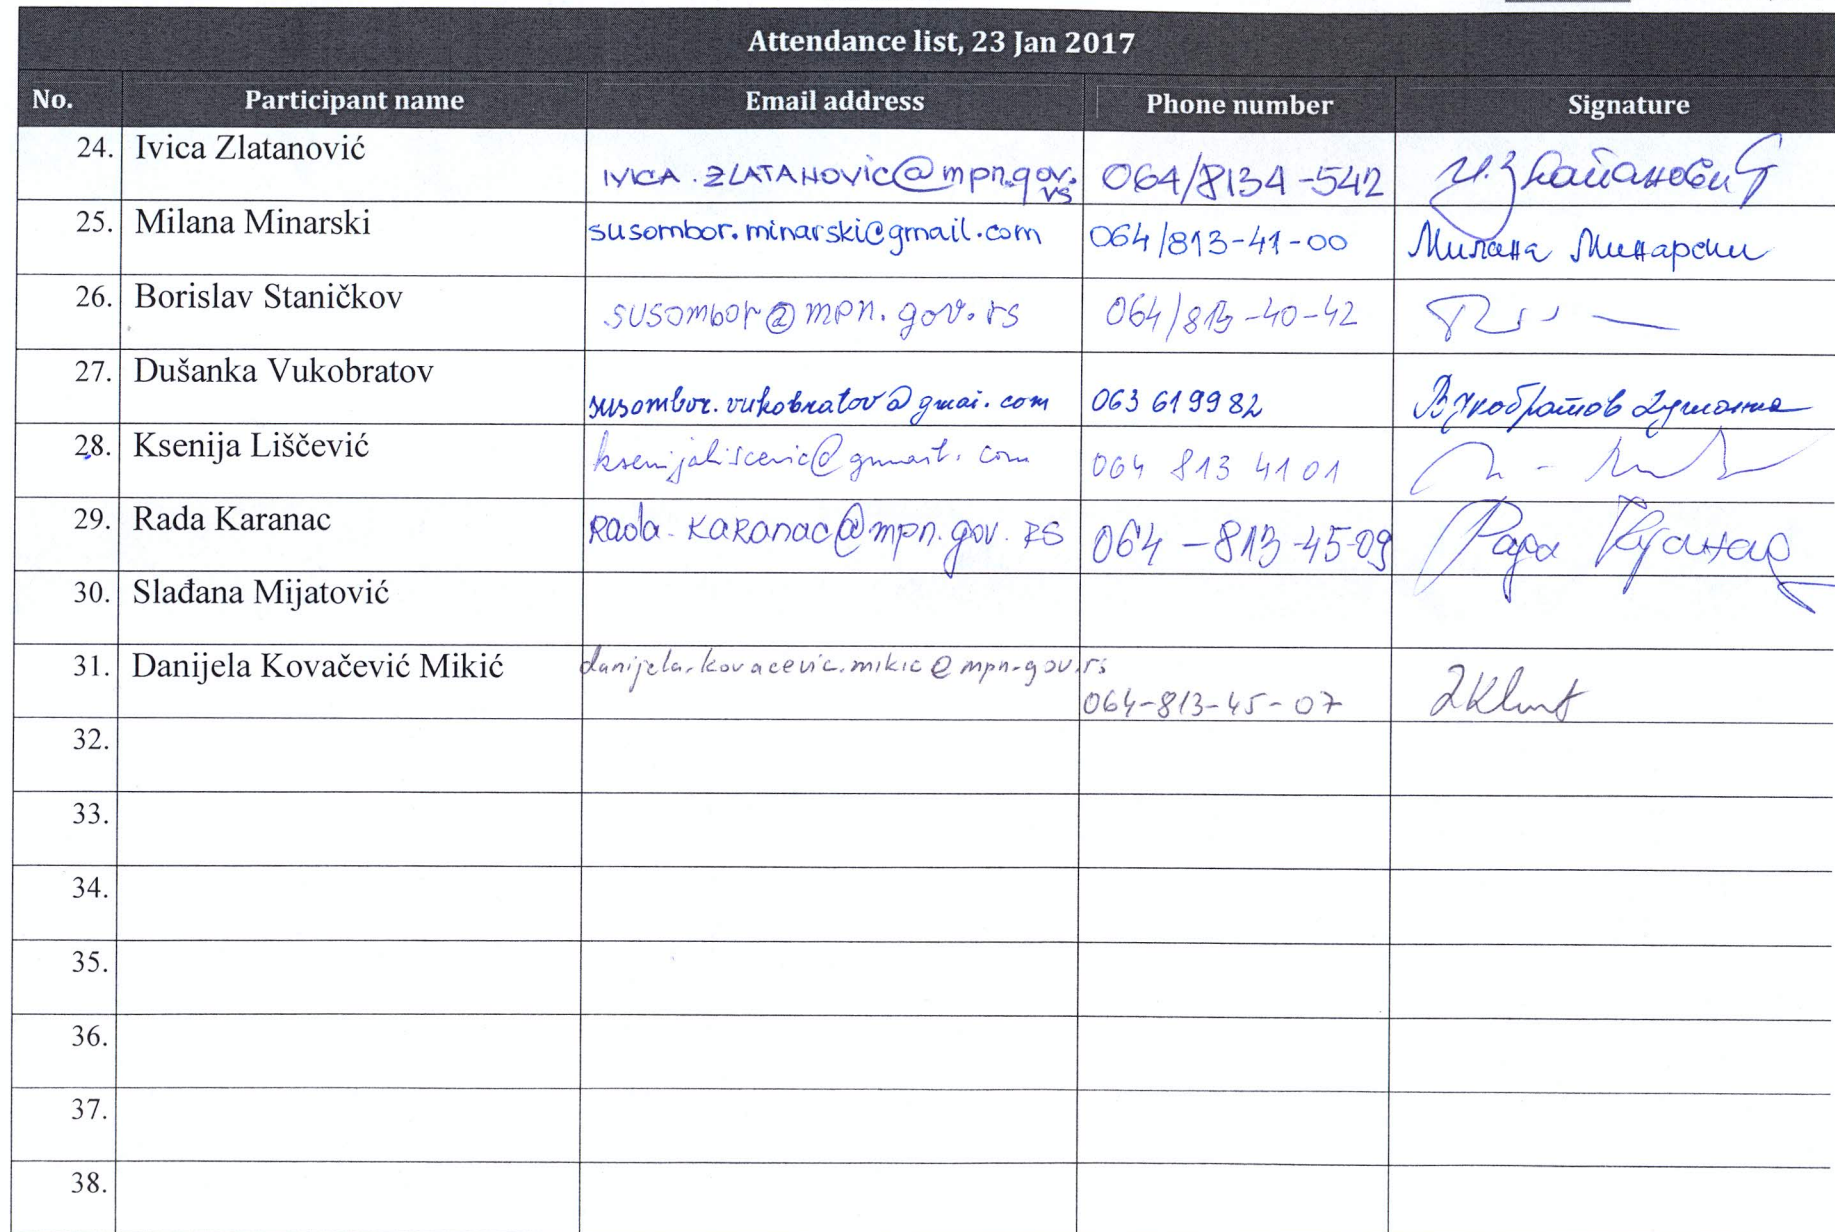 Attendance list, 23 Jan 2017
No. Participant name Email address Phone number Signature
24. Ivica Zlatanović IVICA.ZLATANOVIC@mpn.gov. 064/8134-542 И. Златановић
rs
25. Milana Minarski susombor.minarski@gmail.com 064/813-41-00 Милана Минарски
26. Borislav Staničkov susombor@mpn.gov.rs 064/813-40-42
27. Dušanka Vukobratov susombor.vukobratov@gmai.com 063 619982 Вукобратов Душанка
28. Ksenija Liščević ksenijaliscevic@gmail.com 064 813 41 01
29. Rada Karanac Rada.KARanac@mpn.gov.RS 064-813-45-09 Рада Каранац
30. Slađana Mijatović
31. Danijela Kovačević Mikić danijela.kovacevic.mikic@mpn.gov.rs
064-813-45-07
32.
33.
34.
35.
36.
37.
38.